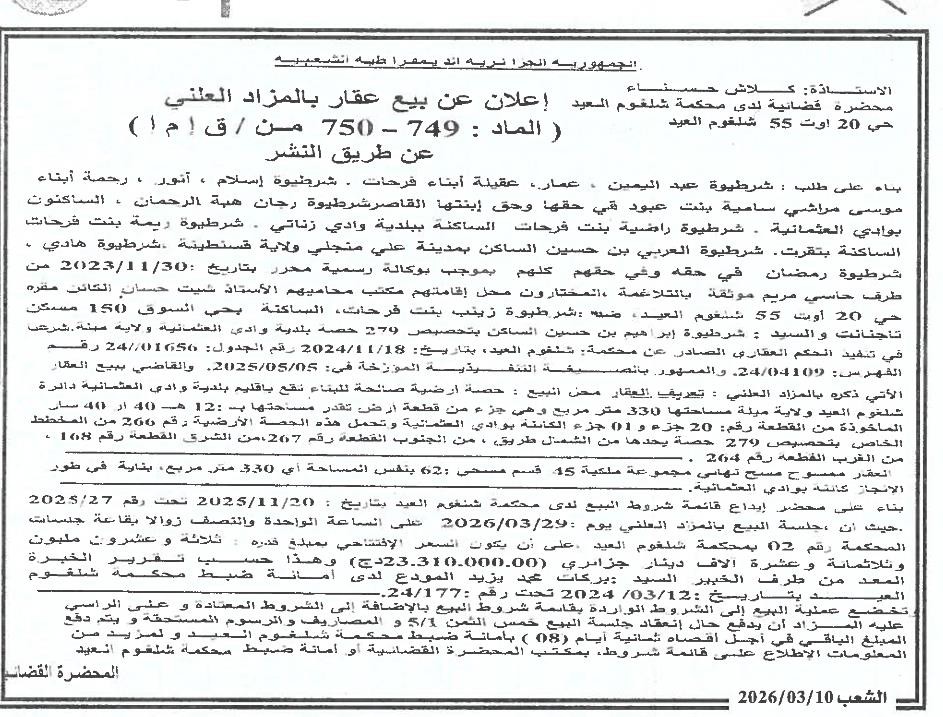 الجمهورية الجزائرية الديمقراطية الشعبية
الاستاذة: كلاش حسناء
محضرة قضائية لدى محكمة شلغوم العيد
حي 20 اوت 55 شلغوم العيد
إعلان عن بيع عقار بالمزاد العلني
( الماد : 749 – 750 من / ق إ م إ )
عن طريق النشر
بناء على طلب : شرطيوة عبد اليمين ، عمار، عقيلة أبناء فرحات . شرطيوة إسلام ، أنور ، رحمة أبناء
موسى مراشي سامية بنت عبود في حقها وحق إبنتها القاصرشرطيوة رجان هبة الرحمان ، الساكنون
بوادي العثمانية . شرطيوة راضية بنت فرحات الساكنة ببلدية وادي زناتي . شرطيوة ريمة بنت فرحات
الساكنة بتقرت. شرطيوة العربي بن حسين الساكن بمدينة علي منجلي ولاية قسنطينة .شرطيوة هادي ،
شرطيوة رمضان في حقه وفي حقهم كلهم بموجب بوكالة رسمية محرر بتاريخ :2023/11/30 من
طرف حاسي مريم موثقة بالتلاغمة ،المختارون محل إقامتهم مكتب محاميهم الأستاذ شيت حسان الكائن مقره
حي 20 أوت 55 شلغوم العيد، ضد :شرطيوة زينب بنت فرحات، الساكنة بحي السوق 150 مسكن
تاجنانت والسيد : شرطيوة إبراهيم بن حسين الساكن بتحصيص 279 حصة بلدية وادي العثمانية ولاية ميلة.
في تنفيذ الحكم العقاري الصادر عن محكمة: شلغوم العيد، بتاريخ: 2024/11/18 رقم الجدول: 24//01656 رقم
الفهرس: 24/04109. والممهور بالصيغة التنفيذية المؤرخة في: 2025/05/05. والقاضي ببيع العقار
الآتي ذكره بالمزاد العلني : تعريف العقار محل البيع : حصة ارضية صالحة للبناء تقع باقليم بلدية وادي العثمانية دائرة
شلغوم العيد ولاية ميلة مساحتها 330 متر مربع وهي جزء من قطعة ارض تقدر مساحتها بـ :12 هـ 40 ار 40 سار
الماخوذة من القطعة رقم: 20 جزء و 01 جزء الكائنة بوادي العثمانية وتحمل هذه الحصة الأرضية رقم 266 من المخطط
الخاص بتحصيص 279 حصة يحدها من الشمال طريق ، من الجنوب القطعة رقم 267،من الشرق القطعة رقم 168 ،
من الغرب القطعة رقم 264 .
العقار ممسوح مسح نهائي مجموعة ملكية 45 قسم مسحي :62 بنفس المساحة أي 330 متر مربع، بناية في طور
الانجاز كائنة بوادي العثمانية.
بناء على محضر إيداع قائمة شروط البيع لدى محكمة شلغوم العيد بتاريخ : 2025/11/20 تحت رقم 2025/27
.حيث ان ،جلسة البيع بالمزاد العلني يوم :2026/03/29 على الساعة الواحدة والنصف زوالا بقاعة جلسات
المحكمة رقم 02 بمحكمة شلغوم العيد .على أن يكون السعر الإفتتاحي بمبلغ قدره : ثلاثة و عشرون مليون
وثلاثمائة و عشرة الاف دينار جزائري (23.310.000.00دج) وهذا حسب تقرير الخبرة
المعد من طرف الخبير السيد :بركات محمد يزيد المودع لدى أمانة ضبط محكمة شلغوم
العيد بتاريخ :2024 /03/12 تحت رقم :24/177.
تخضع عملية البيع إلى الشروط الواردة بقائمة شروط البيع بالإضافة إلى الشروط المعتادة و على الراسي
عليه المزاد أن يدفع حال إنعقاد جلسة البيع خمس الثمن 5/1 و المصاريف والرسوم المستحقة و يتم دفع
المبلغ الباقي في أجل اقصاه ثمانية أيام (08 ) بأمانة ضبط محكمة شلغوم العيد و لمزيد من
المعلومات الإطلاع على قائمة شروط، بمكتب المحضرة القضائية أو امانة ضبط محكمة شلغوم العيد
المحضرة القضائية
الشعب 2026/03/10